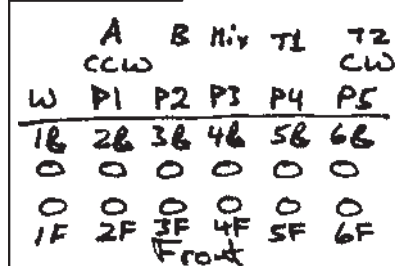 A B Mix T1 T2
CCW CW
W P1 P2 P3 P4 P5
1B 2B 3B 4B 5B 6B
1F 2F 3F 4F 5F 6F
Front